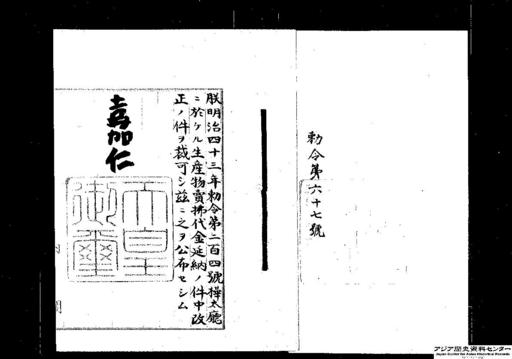 勅令第六十七號
朕明治四十三年勅令第二百四號樺太廳
ニ於ケル生産物賣拂代金延納ノ件中改
正ノ件ヲ裁可シ茲ニ之ヲ公布セシム
嘉仁
天皇
御璽
内
閣
アジア歴史資料センター
Japan Center for Asian Historical Records